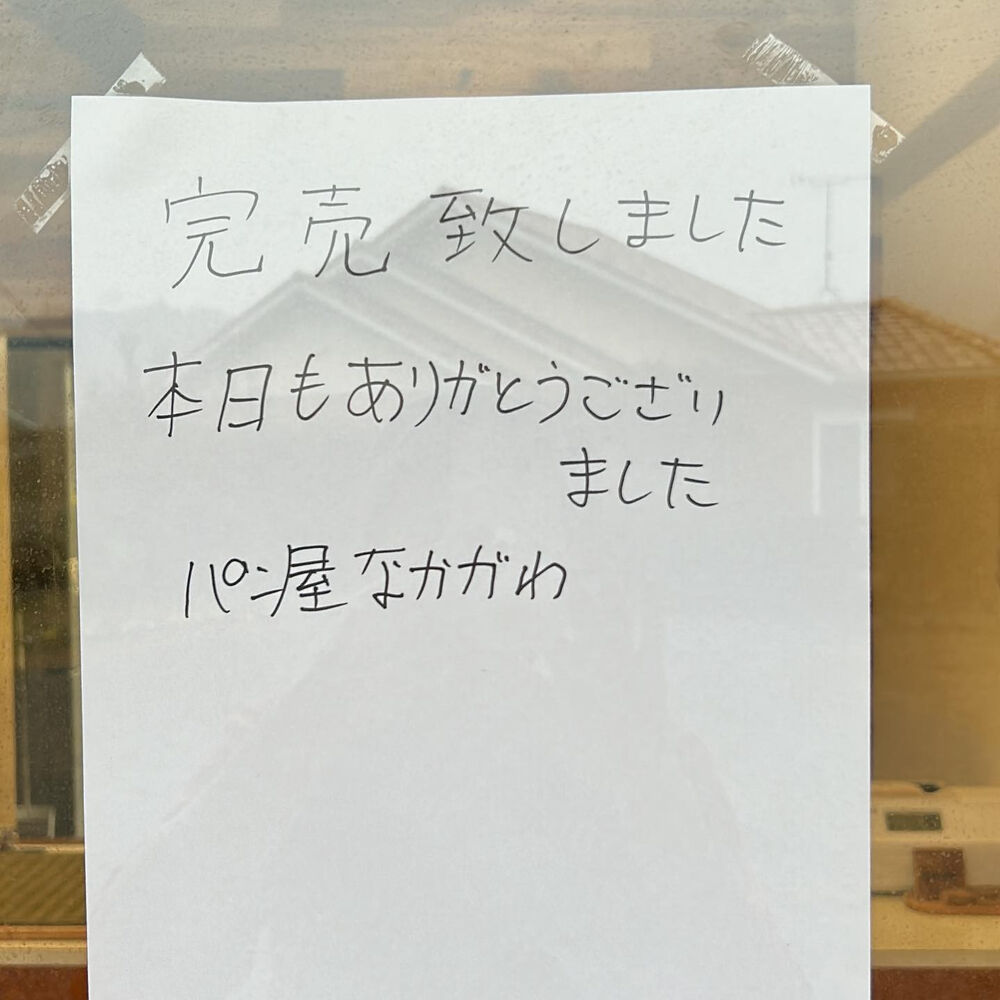 完売致しました
本日もありがとうござい
ました
パン屋なかがわ